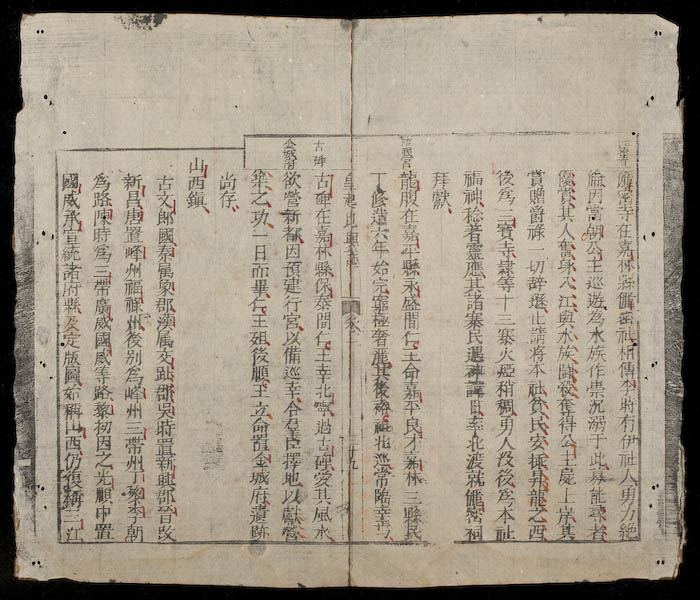 寺在嘉林縣社相傳李時有伊社人勇力絕
倫丙當朝公主巡遊為水族作祟沉溺于此募能求者
優賞其人奮身入江與水族鬪後奪得公主屍上岸其
賞贈爵祿一切辞遜止請將本社貧民安插昇龍之西
後為三寶寺隷等十三寨火煙稍稠男人没後為本社
福神稔著靈應其諸寨民遇神諱日奉北渡就祠
拜獻
龍腹在嘉平縣永盛間仁王命嘉平良才嘉林三縣民
丁修造六年始完窮極奢麗其後北巡常臨幸焉
皇越地輿誌 卷 三十九
古碑
古碑在嘉林縣保泰間仁王幸北寧過古碑愛其風水
金城府
欲營新都因預建行宮以備巡幸令羣臣擇地以獻營
築之功一日而畢仁王殂後順王立命置金城府遺跡
尚存
山西鎮
古文郎國秦属象郡漢属交趾郡吳時置新興郡晉改
新昌唐置峰州福祿州後别為峰州三帶州丁黎李朝
為路陳時為三帶廣威國威等路黎初因之光順中置
國威承宣統諸府縣及定版圖始稱山西仍復轄三江